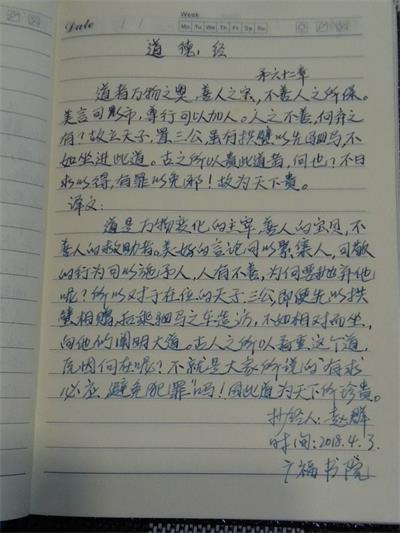 Week
Date / /
Mo Tu We Th Fr Sa Su
道德经
第六十二章
道者万物之奥,善人之宝,不善人之所保。
美言可以市,尊行可以加人。人之不善,何弃之
有?故立天子,置三公,虽有拱璧以先驷马,不
如坐进此道。古之所以贵此道者,何也?不曰
求以得,有罪以免邪!故为天下贵。
译文:
道是万物变化的主宰,善人的宝贝,不
善人的救助者。美好的言论可以聚集人,可敬
的行为可以施予人,人有不善,为何要抛弃他
呢?所以对于在位的天子三公,即使先以拱
璧相赠,后乘驷马之车造访,不如相对而坐,
向他们阐明大道。古人之所以看重这个道,
原因何在呢?不就是大家所说的“有求
必应,避免犯罪”吗!因此道为天下所珍贵。
抄经人:赵群
时间:2018.4.3.
广福书院